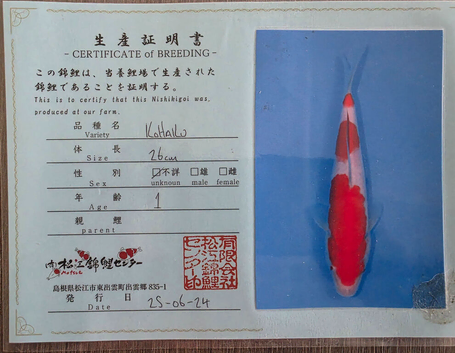 生産証明書
- CERTIFICATE of BREEDING -
この錦鯉は、当養鯉場で生産された
錦鯉であることを証明する。
This is to certify that this Nishikigoi was,
produced at our farm.
品種名 KOHAKU
Variety
体長 26cm
Size
性別 ☑不詳 □雄 □雌
Sex unknoun male female
年齢 1
Age
親鯉
parent
(有)松江錦鯉センター
MATSUE
島根県松江市東出雲町出雲郷835-1
発行日 25-06-24
Date
有限会社
松江錦鯉
センター印